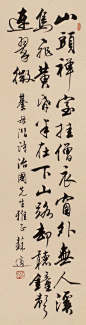 山頭禪室挂僧衣窗外無人溪
鳥飛黃昏半在下山路却聽鐘聲
連翠微 綦毋潛詩 治國先生雅正 蘇適